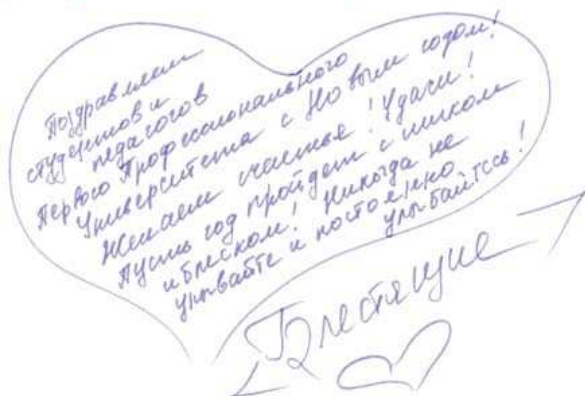 Поздравляем
студентов и
педагогов
Первого Профессионального
Университета с Новым годом!
Желаем счастья! Удачи!
Пусть год пройдет с шиком
и блеском! Никогда не
унывайте и постоянно
улыбайтесь!
Блестящие